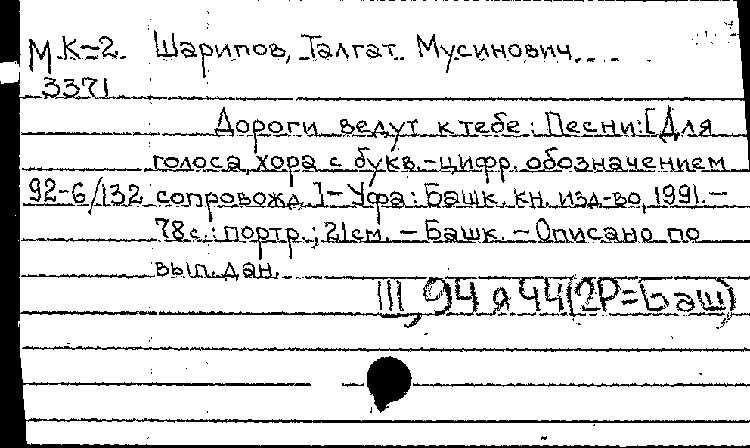 МК-2 Шарипов, Талгат Мусинович.
3371
Дороги ведут к тебе: Песни: [Для
голоса, хора с букв.-цифр. обозначением
92-6/132 сопровожд.] - Уфа: Башк. кн. изд-во, 1991. -
78с.: портр.; 21см. - Башк. - Описано по
вып. дан.
III, 94 я 44(2Р=Баш)